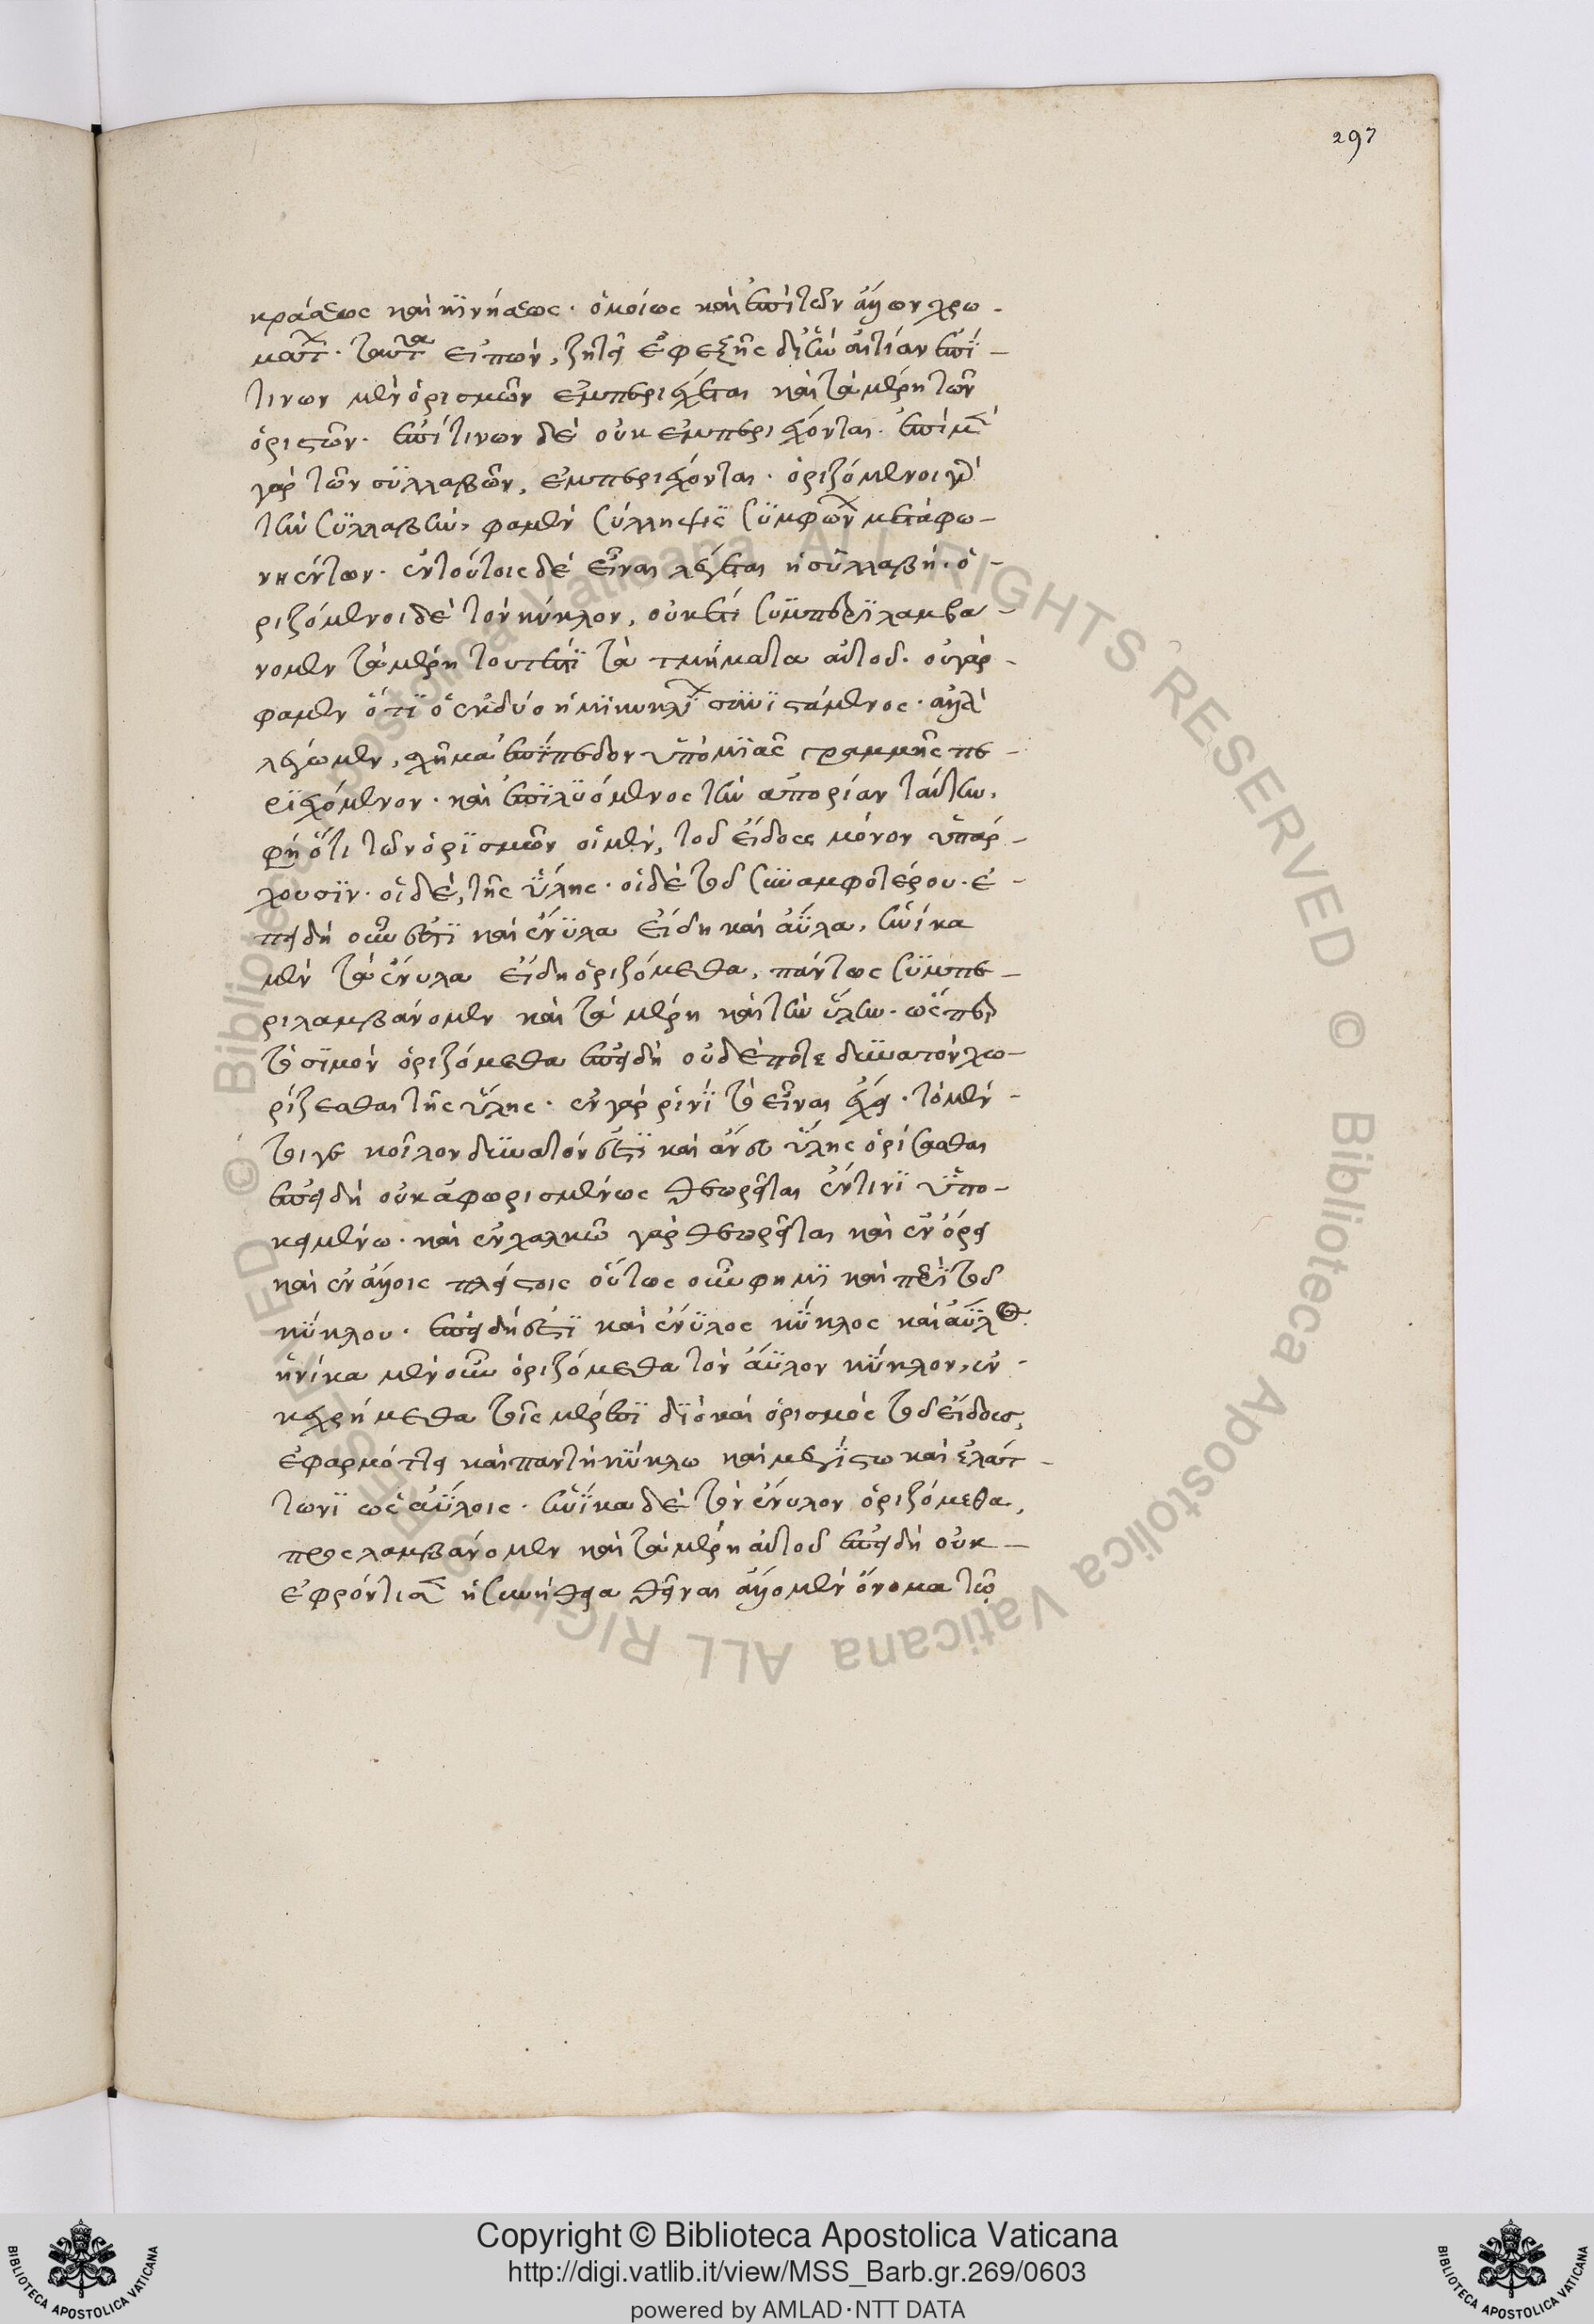 297
κράσεως καὶ κινήσεως. ὁμοίως καὶ ἐπὶ τῶν ἄλλων χρω-
μάτων. ταῦτα εἰπὼν, ζητεῖ ἐφεξῆς δι' ἣν αἰτίαν ἐπί-
τινων μὲν ὁρισμῶν ἐμπεριέχεται καὶ τὰ μέρη τῶν
ὁριστῶν. ἐπί τινων δὲ οὐκ ἐμπεριέχονται. ἐπὶ μὲν
γὰρ τῶν συλλαβῶν, ἐμπεριέχονται. ὁριζόμενοι γὰρ
τὴν συλλαβὴν, φαμὲν σύλληψις συμφώνων μετὰ φω-
νηέντων. ἐν τούτοις δὲ εἶναι λέγεται ἡ συλλαβή. ὁ-
ριζόμενοι δὲ τὸν κύκλον, οὐκέτι συμπεριλαμβά-
νομεν τὰ μέρη τουτέστι τὰ τμήματα αὐτοῦ. οὐ γάρ-
φαμεν ὅτι ὁ ἐκ δύο ἡμικυκλίων συνιστάμενος. ἀλλὰ
λέγομεν, σχῆμα ἐπίπεδον ὑπὸ μιᾶς γραμμῆς πε-
ριεχόμενον. καὶ ἐπιλυόμενος τὴν ἀπορίαν ταύτην,
φη ὅτι τῶν ὁρισμῶν οἱ μὲν, τοῦ εἴδους μόνον ὑπάρ-
χουσιν. οἱ δὲ, τῆς ὕλης. οἱ δὲ τοῦ συναμφοτέρου. ἐ-
πειδὴ οὖν ἐστὶ καὶ ἔνυλα εἴδη καὶ ἄϋλα, ἡνίκα
μὲν τὰ ἔνυλα εἴδη ὁριζόμεθα, πάντως συμπε-
ριλαμβάνομεν καὶ τὰ μέρη καὶ τὴν ὕλην. ὥσπερ
τὸ σιμὸν ὁριζόμεθα ἐπειδὴ οὐδέποτε δυνατὸν χω-
ρίζεσθαι τῆς ὕλης. ἐν γὰρ ῥινὶ τὸ εἶναι ἔχει. τὸ μέν-
τοιγε κοῖλον δυνατόν ἐστι καὶ ἄνευ ὕλης ὁρίσασθαι
ἐπειδὴ οὐκ ἀφωρισμένως θεωρεῖται ἔν τινι ὑπο-
κειμένω. καὶ ἐν χαλκῶ γὰρ θεωρεῖται καὶ ἐν ὄρει
καὶ ἐν ἄλλοις πλείστοις οὕτως οὖν φημι καὶ περὶ τοῦ
κύκλου. ἐπειδή ἐστι καὶ ἔνυλος κύκλος καὶ ἄϋλος.
ἡνίκα μὲν οὖν ὁριζόμεθα τὸν ἄϋλον κύκλον, οὐ
κεχρήμεθα τοῖς μέρεσι διὸ καὶ ὁρισμὸς τοῦ εἴδους,
ἐφαρμόττει καὶ παντὶ κύκλω καὶ μεγίστω καὶ ἐλάτ-
τονι ὡς ἀΰλοις. ἡνίκα δὲ τὸν ἔνυλον ὁριζόμεθα,
προσλαμβάνομεν καὶ τὰ μέρη αὐτοῦ ἐπειδὴ οὐκ-
ἐφρόντισεν ἡ συνήθεια θεῖναι ἄλλο μὲν ὄνομα τῶ
Copyright © Biblioteca Apostolica Vaticana
http://digi.vatlib.it/view/MSS_Barb.gr.269/0603
powered by AMLAD·NTT DATA